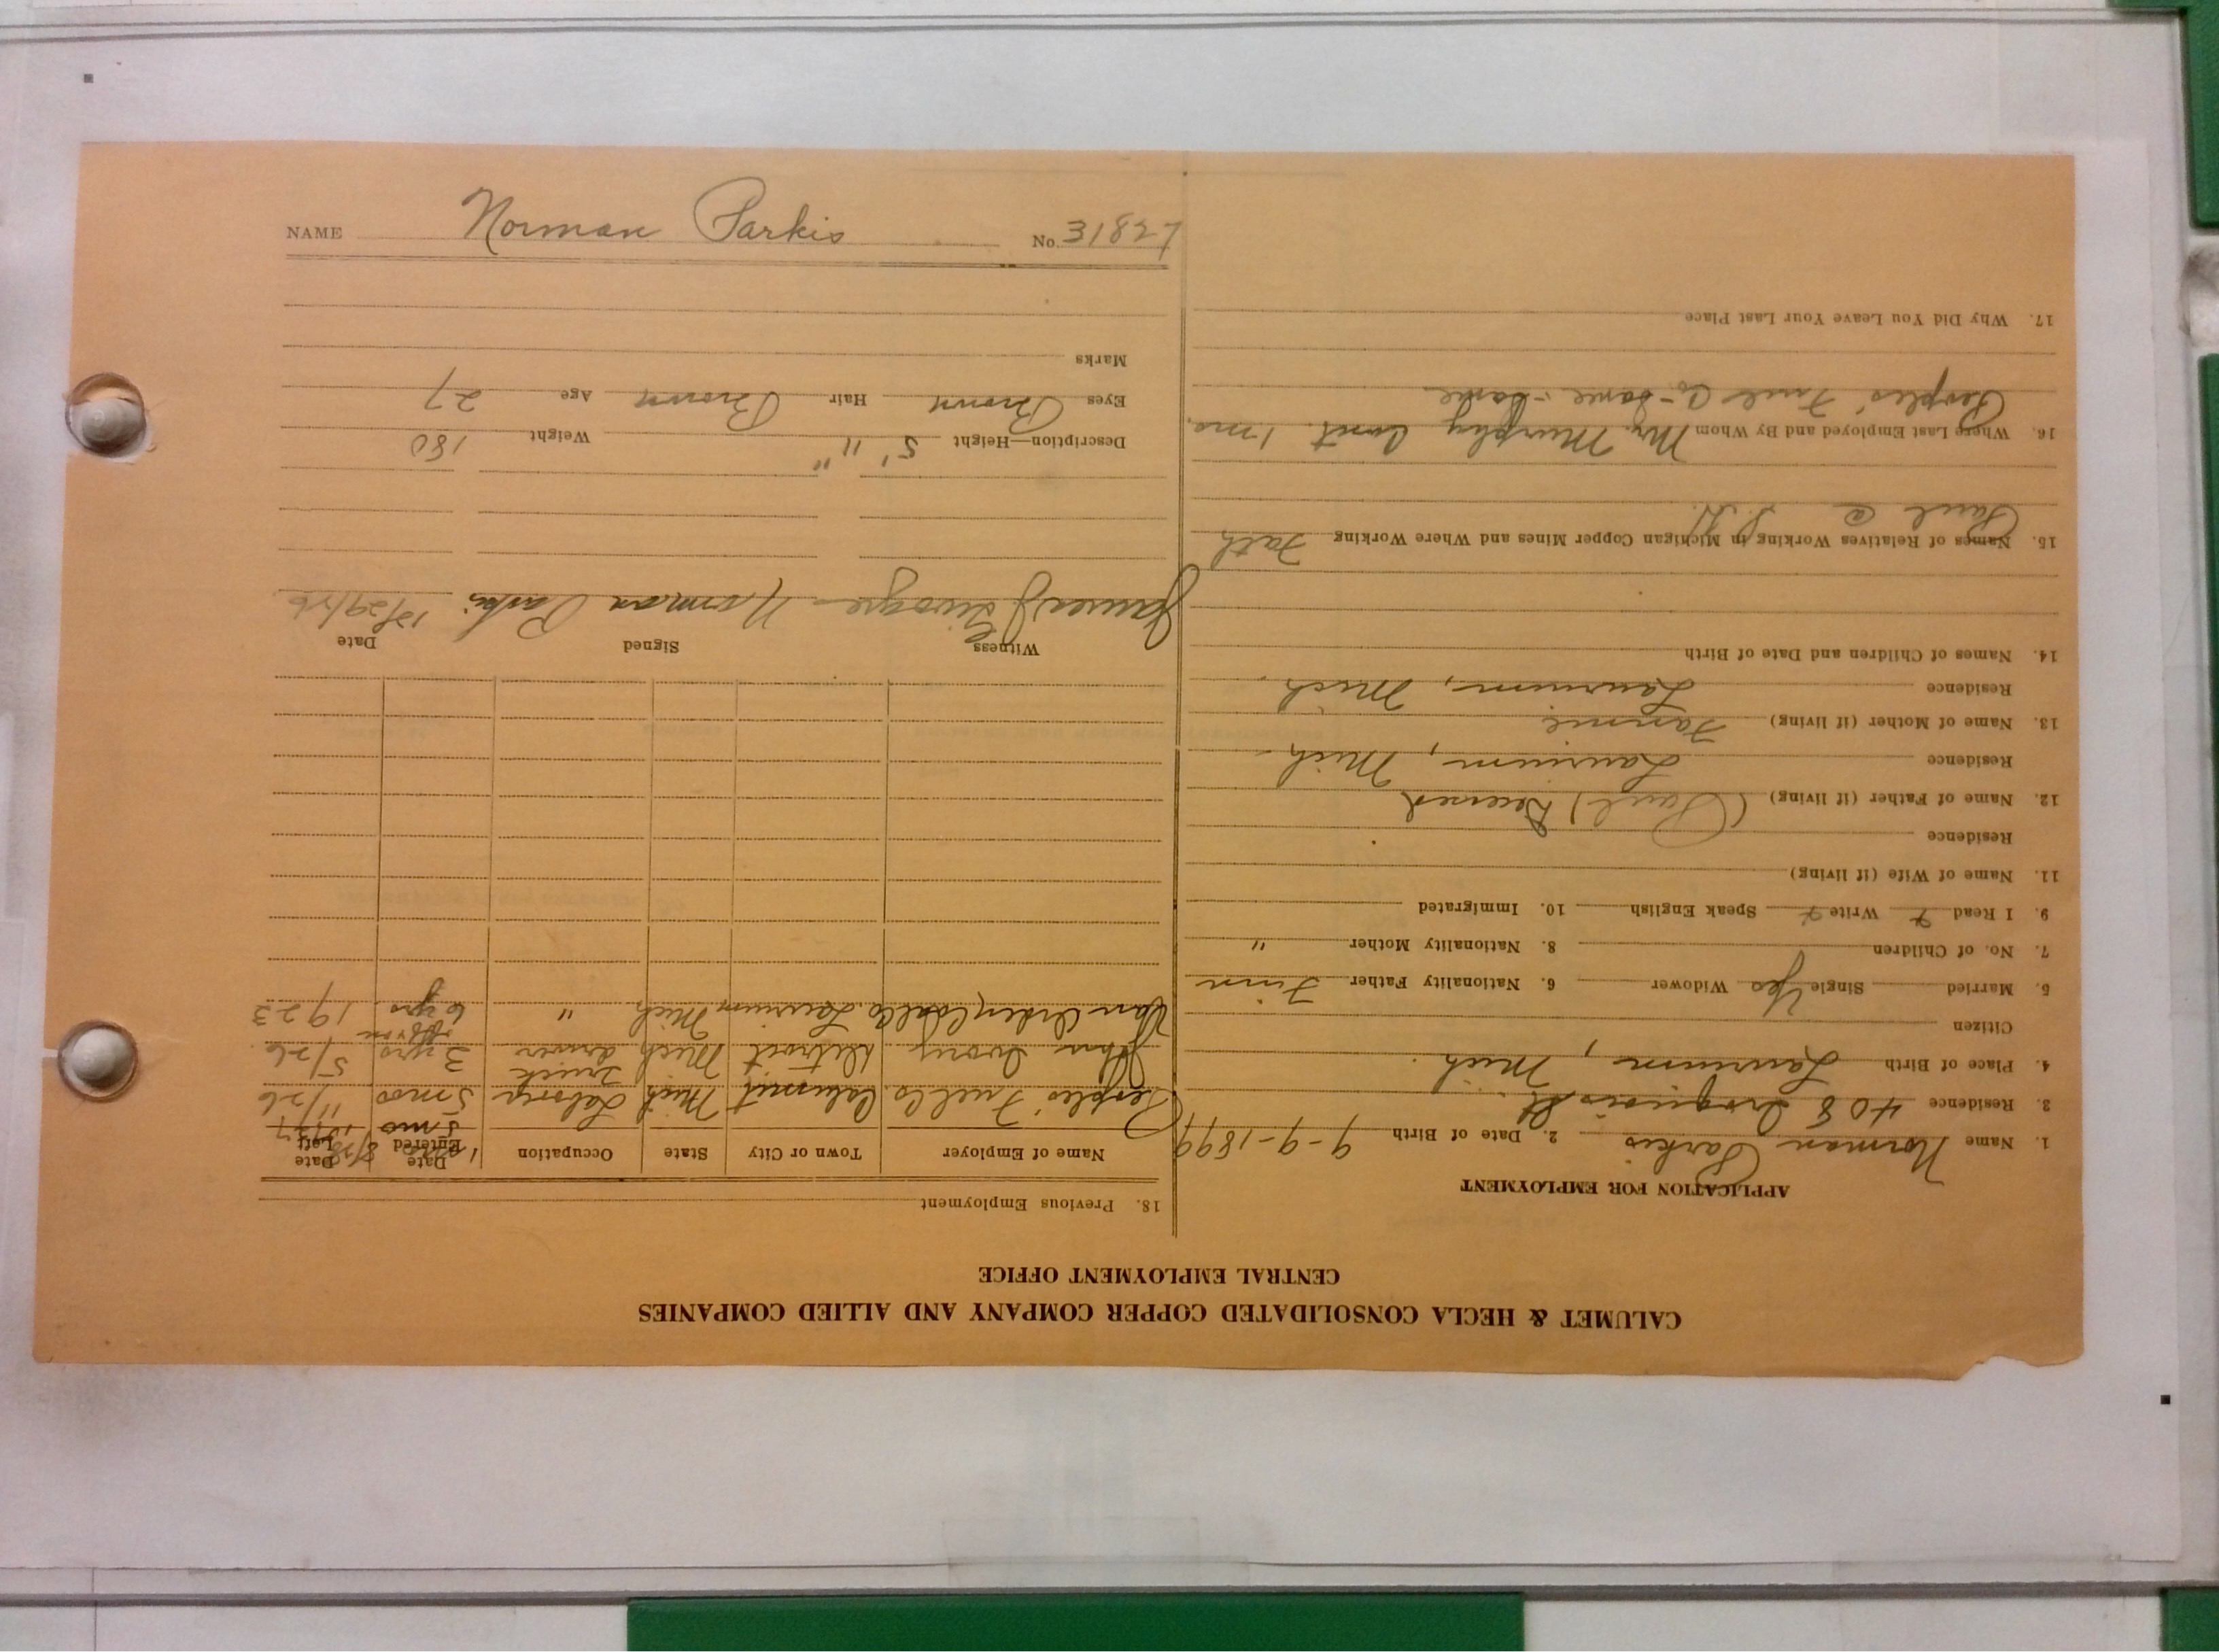 NAME Norman Parkis No. 31827
CALUMET & HECLA CONSOLIDATED COPPER COMPANY AND ALLIED COMPANIES
CENTRAL EMPLOYMENT OFFICE
APPLICATION FOR EMPLOYMENT
1. Name Norman Parkis 2. Date of Birth 9-9-1899
3. Residence 408 Iroquois St
4. Place of Birth Laurium, Mich.
Citizen
5. Married Single Yes Widower 6. Nationality Father Finn
7. No. of Children 8. Nationality Mother "
9. I Read Write Speak English 10. Immigrated
11. Name of Wife (if living)
Residence
12. Name of Father (if living) (Paul) Deceased
Residence Laurium, Mich.
13. Name of Mother (if living) Fannie
Residence Laurium, Mich.
14. Names of Children and Date of Birth
15. Names of Relatives Working in Michigan Copper Mines and Where Working Fath
Paul @
16. Where Last Employed and By Whom Mr. Murphy Cont. 1 mo.
Peoples' Fuel Co - Same - Same
17. Why Did You Leave Your Last Place
18. Previous Employment
Name of Employer Town or City State Occupation Date Entered Date Left
5 mos
Peoples' Fuel Co Calumet Mich Laborer 5 mos 11/26
John Ivory Detroit Mich Truck driver 3 yrs 5/26
Van Orden Coal Co. Laurium Mich " 6 yrs 1923
Witness Signed Date
James J Norman Parkis 12/29/26
Description—Height 5' 11" Weight 180
Eyes Brown Hair Brown Age 27
Marks